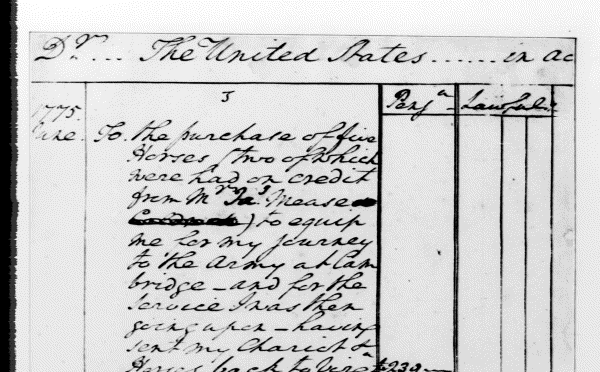 Dr... The United States ...... in ac
3
Pensa Lawful
1775.
June. To the purchase of five
Horses (two of which
were had on credit
from Mr Jas Mease
) to equip
me for my journey
to the Army at Cam
bridge – and for the
Service I was then
going upon – having
sent my Chariot &
Horses back to Virg 239